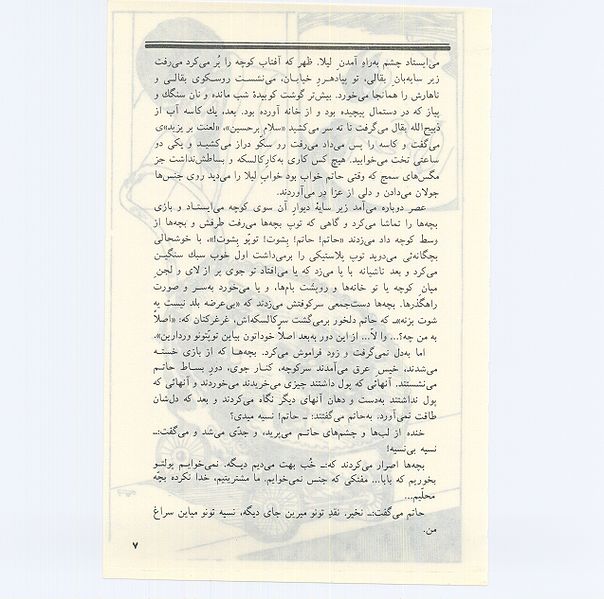 می‌ایستاد چشم به‌راهِ آمدنِ لیلا. ظهر که آفتاب کوچه را پُر می‌کرد می‌رفت
زیر سایه‌بانِ بقالی، تو پیاده‌روِ خیابان، می‌نشست روسکوی بقالی و
ناهارش را همانجا می‌خورد. بیش‌تر گوشت کوبیدهٔ شب مانده و نان سنگک و
پیاز که در دستمال پیچیده بود و از خانه آورده بود. بعد، یک کاسه آب از
ذبیح‌الله بقال می‌گرفت تا ته سر می‌کشید «سلام برحسین»، «لعنت بر یزید»ی
می‌گفت و کاسه را پس می‌داد می‌رفت رو سکّو دراز می‌کشید و یکی دو
ساعتی تخت می‌خوابید. هیچ کس کاری به‌کارِ کالسکه و بساطش‌نداشت جز
مگس‌های سمج که وقتی حاتم خواب بود خوابِ لیلا را می‌دید روی جنس‌ها
جولان می‌دادن و دلی از عزا در می‌آوردند.
عصر دوباره می‌آمد زیر سایهٔ دیوارِ آن سوی کوچه می‌ایستاد و بازی
بچه‌ها را تماشا می‌کرد و گاهی که توپ بچه‌ها می‌رفت طرفش و بچه‌ها از
وسط کوچه داد می‌زدند «حاتم! حاتم! بِشوت! توپو بِشوت!»، با خوشحالی
بچگانه‌ئی می‌دوید توپ پلاستیکی را برمی‌داشت اول خوب سبک سنگین
می‌کرد و بعد ناشیانه با پا می‌زد که یا می‌افتاد تو جوی پر از لای و لجن
میان کوچه یا تو خانه‌ها و روپشت بام‌ها، و یا می‌خورد به‌سر و صورت
راهگذرها. بچه‌ها دست‌جمعی سرکوفتش می‌زدند که «بی‌عرضه بلد نیست یه
شوت بزنه»ـ که حاتم دلخور برمی‌گشت سرکالسکه‌اش، غرغرکنان که: «اصلاً
به من چه؟... وا لاّ... از این دور به‌بعد اصلاً خوداتون بیاین توپتونو وردارین».
اما به‌دل نمی‌گرفت و زود فراموش می‌کرد. بچه‌ها که از بازی خسته
می‌شدند، خیس عرق می‌آمدند سرکوچه، کنار جوی، دورِ بساط حاتم
می‌نشستند. آنهائی که پول داشتند چیزی می‌خریدند می‌خوردند و آنهائی که
پول نداشتند به‌دست و دهان آنهای دیگر نگاه می‌کردند و بعد که دل‌شان
طاقت نمی‌آورد. به‌حاتم می‌گفتند: ـ حاتم! نسیه میدی؟
خنده از لب‌ها و چشم‌های حاتم می‌پرید، و جدّی می‌شد و می‌گفت:ـ
نسیه بی‌نسیه!
بچه‌ها اصرار می‌کردند که:ـ خُب بهت می‌دیم دیگه. نمی‌خوایم پولتو
بخوریم که بابا... مفتکی که جنس نمی‌خوایم. ما مشتریتیم، خدا نکرده بچّه
محلّیم...
حاتم می‌گفت:ـ نخیر. نقدِ تونو میرین جای دیگه، نسیه تونو میاین سراغ
من.
۷